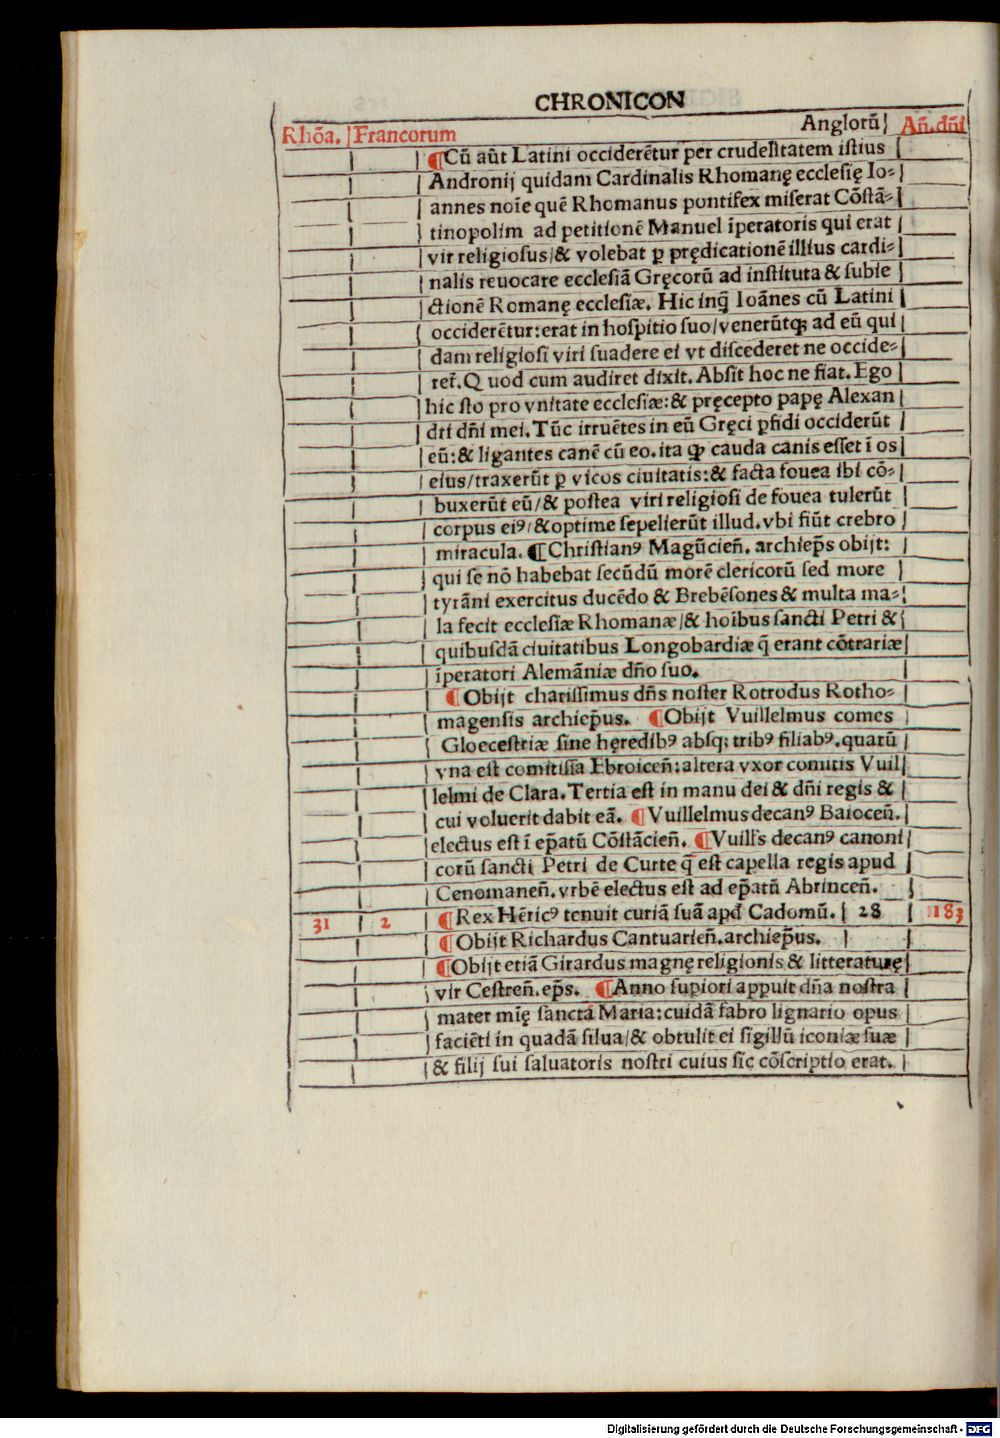 CHRONICON
Rhõa. Francorum Anglorũ Añ.dñi
¶Cũ aũt Latini occiderẽtur per crudelitatem iſtius
Andronij quidam Cardinalis Rhomanę eccleſię Io-
annes noĩe quẽ Rhomanus pontifex miſerat Cõſtã-
tinopolim ad petitionẽ Manuel ĩperatoris qui erat
vir religioſus/& volebat ꝑ prędicationẽ illius cardi-
nalis reuocare eccleſiã Gręcorũ ad inſtituta & ſubie
ctionẽ Romanę eccleſiæ. Hic inq̃ Ioãnes cũ Latini
occiderẽtur:erat in hoſpitio ſuo/venerũtq; ad eũ qui
dam religioſi viri ſuadere ei vt diſcederet ne occide-
ret̃. Quod cum audiret dixit. Abſit hoc ne fiat. Ego
hic ſto pro vnitate eccleſiæ:& pręcepto papę Alexan
dri dñi mei. Tũc irruẽtes in eũ Gręci ꝑfidi occiderũt
eũ:& ligantes canẽ cũ eo.ita ꝙ cauda canis eſſet ĩ os
eius/traxerũt ꝑ vicos ciuitatis:& facta fouea ibi cõ-
buxerũt eũ/& poſtea viri religioſi de fouea tulerũt
corpus eiꝰ/&optime ſepelierũt illud.vbi fiũt crebro
miracula. ¶Chriſtianꝰ Magũcieñ. archiep̃s obijt:
qui ſe nõ habebat ſecũdũ morẽ clericorũ ſed more
tyrãni exercitus ducẽdo & Brebẽſones & multa ma-
la fecit eccleſiæ Rhomanæ/& hoĩbus ſancti Petri &
quibuſdã ciuitatibus Longobardiæ q̃ erant cõtrariæ
ĩperatori Alemãniæ dño ſuo.
¶Obijt chariſſimus dñs noſter Rotrodus Rotho-
magenſis archiep̃us. ¶Obijt Vuillelmus comes
Gloeceſtriæ ſine hęredibꝰ abſq; tribꝰ filiabꝰ.quarũ
vna eſt comitiſſa Ebroiceñ:altera vxor comitis Vuil
lelmi de Clara. Tertia eſt in manu dei & dñi regis &
cui voluerit dabit eã. ¶Vuillelmus decanꝰ Baioceñ.
electus eſt ĩ ep̃atũ Cõſtãcieñ. ¶Vuilľs decanꝰ canoni
corũ ſancti Petri de Curte q̃ eſt capella regis apud
Cenomaneñ. vrbẽ electus eſt ad ep̃atũ Abrinceñ.
31 2 ¶Rex Hẽricꝰ tenuit curiã ſuã apđ Cadomũ. 28 183
¶Obijt Richardus Cantuarieñ.archiep̃us.
¶Obijt etiã Girardus magnę religionis & litteraturę
vir Ceſtreñ.ep̃s. ¶Anno ſupiori appuit dña noſtra
mater mię ſanctã Maria:cuidã fabro lignario opus
faciẽti in quadã ſilua/& obtulit ei ſigillũ iconiæ ſuæ
& filij ſui ſaluatoris noſtri cuius ſic cõſcriptio erat.
Digitalisierung gefördert durch die Deutsche Forschungsgemeinschaft - DFG